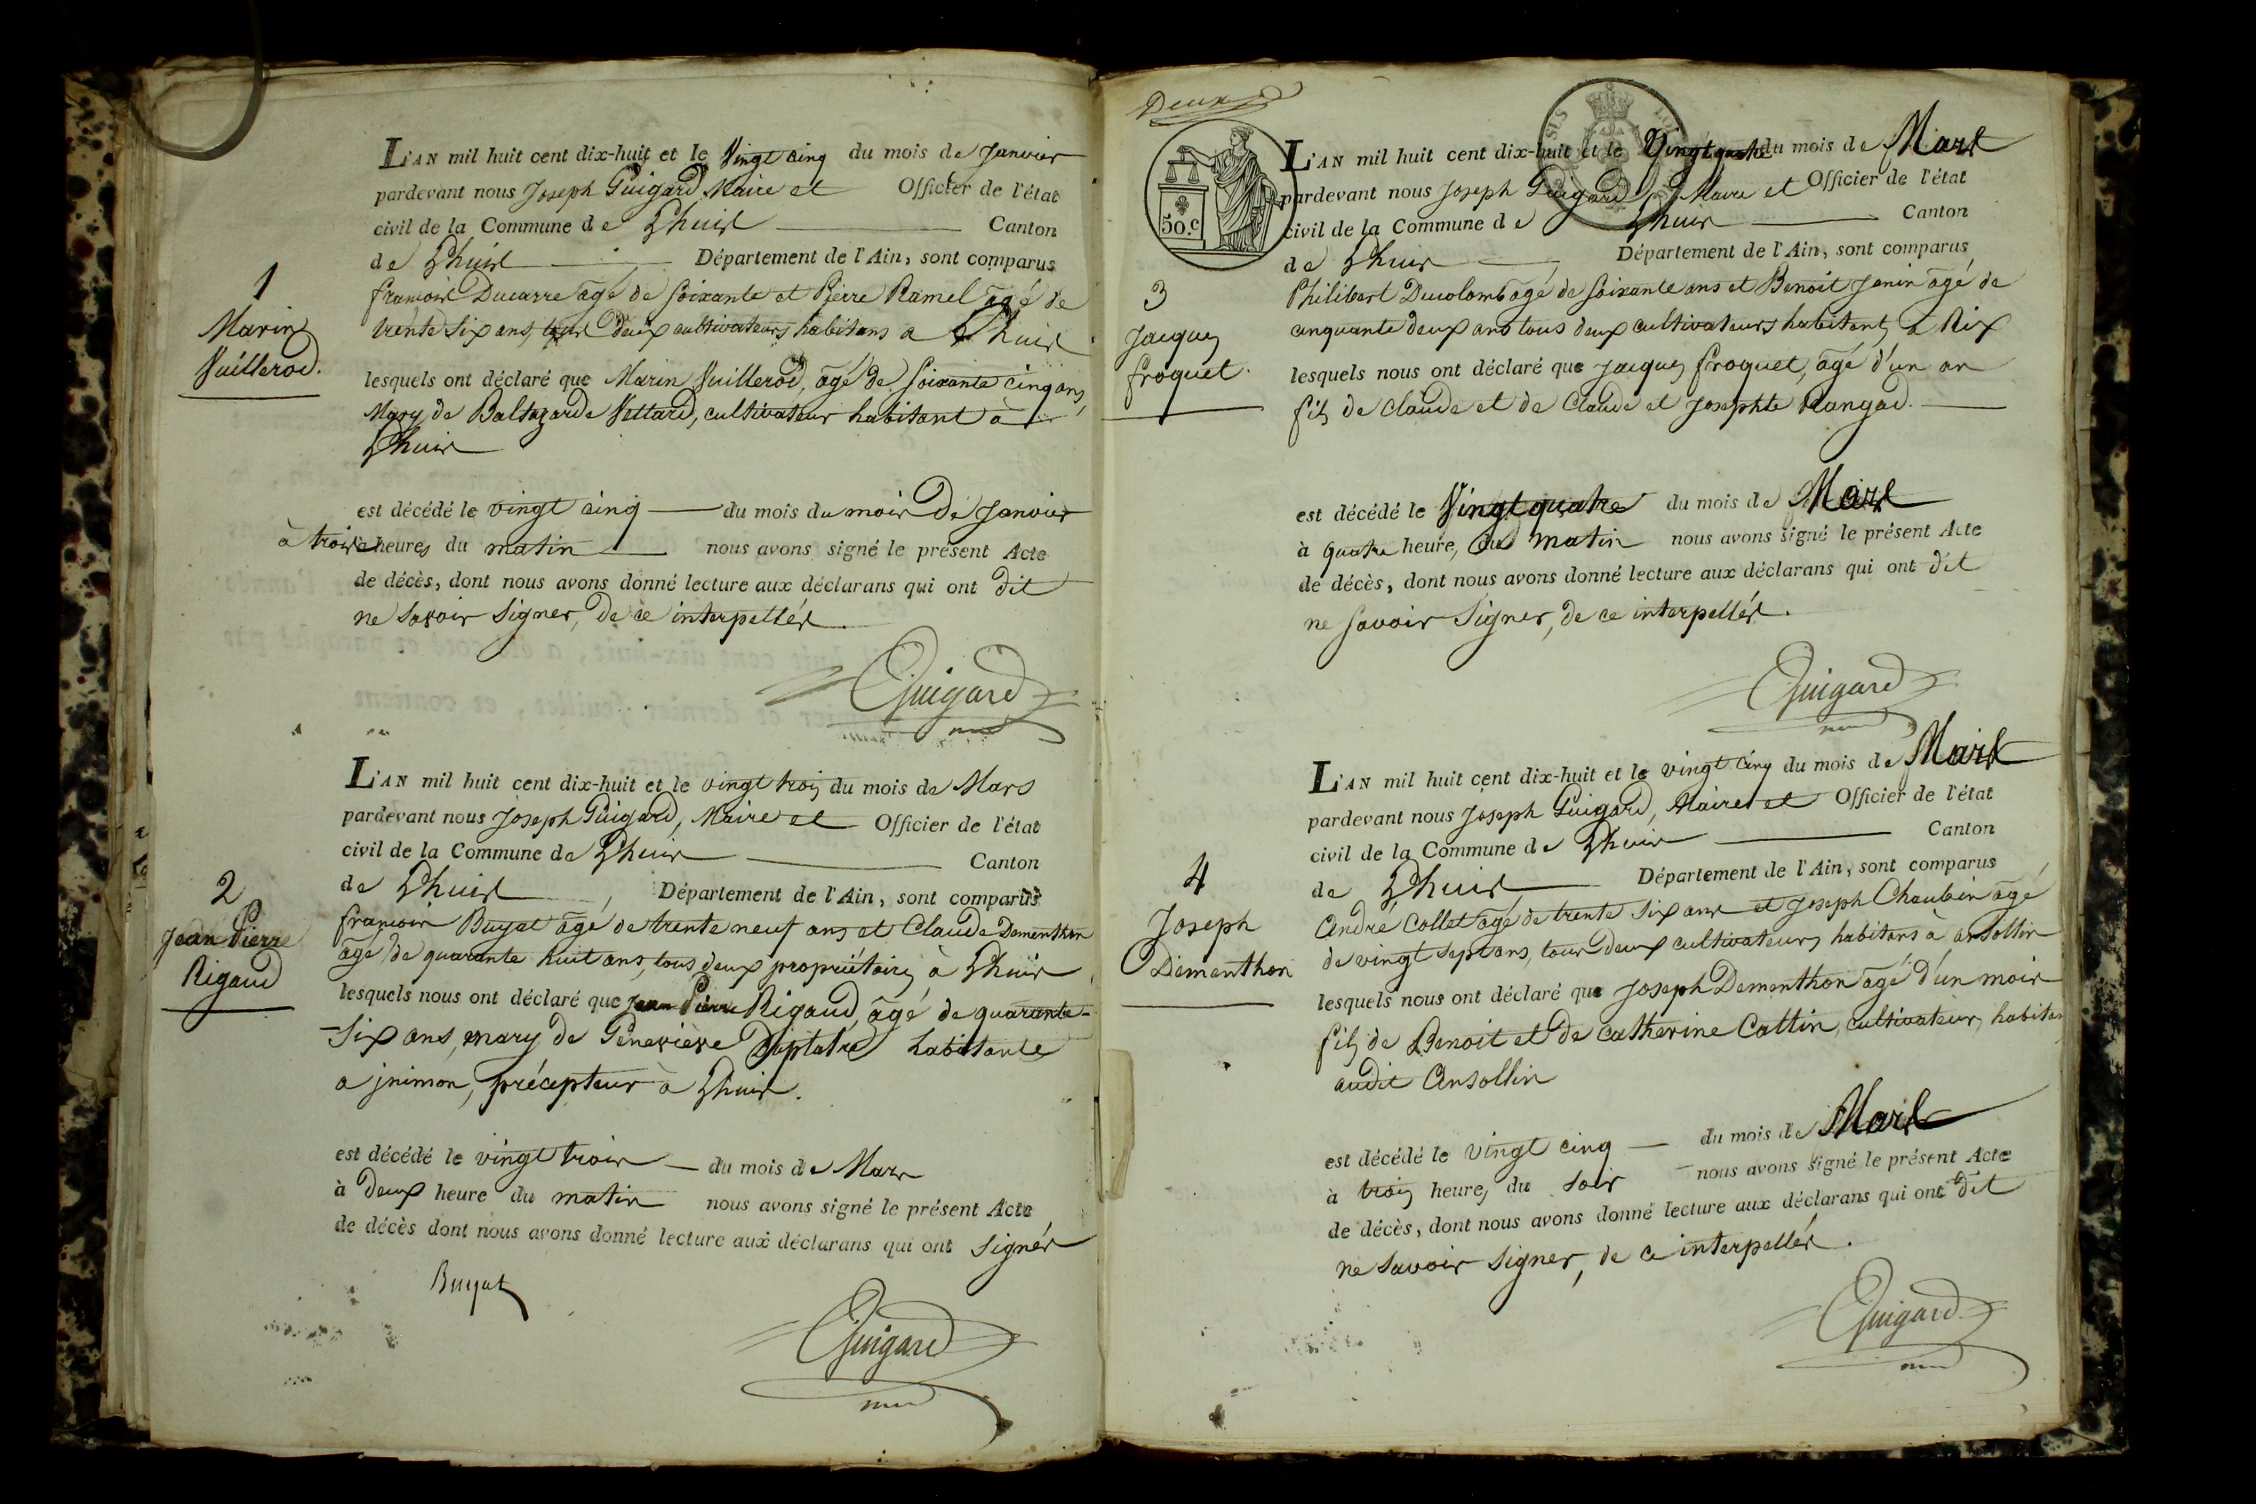 L'AN mil huit cent dix-huit et le Vingt cinq du mois de Janvier
pardevant nous Joseph Guigard Maire et Officier de l'état
civil de la Commune de Lhuis Canton
de Lhuis Département de l'Ain, sont comparus
francois Ducarre âgé de soixante et Pierre Ramel âgé de
trente six ans, tous deux cultivateurs habitans a Lhuis
lesquels ont déclaré que Marin Vuillerod, âgé de soixante cinq ans,
Mary de Baltazarde Vettard, cultivateur habitant à
Lhuis
1
Marin
Vuillerod.
est décédé le vingt cinq du mois du mois De Janvier
à trois heures du matin nous avons signé le présent Acte
de décès, dont nous avons donné lecture aux déclarans qui ont dit
ne savoir signer, de ce interpellés
Guigard
L'AN mil huit cent dix-huit et le vingt trois du mois de Mars
pardevant nous Joseph Guigard, Maire et Officier de l'état
civil de la Commune de Lhuis Canton
de Lhuis Département de l'Ain, sont comparus
francois Buyat âgé de trente neuf ans et Claude Dementhon
âgé de quarante huit ans, tous deux propriétaires à Lhuis
lesquels nous ont déclaré que Jean Pierre Rigaud, âgé de quarante-
-six ans, mary de Genevieve habitante
a jnimon, précepteur à Lhuis.
2
Jean Pierre
Rigaud
est décédé le vingt trois du mois de Mars
à Deux heure du matin nous avons signé le présent Acte
de décès dont nous avons donné lecture aux déclarans qui ont signés
Buyat
Guigard
Deux
50.c
L'AN mil huit cent dix-huit et le Vingt quatre du mois de Mars
pardevant nous Joseph Guigard, Maire et Officier de l'état
civil de la Commune de Lhuis Canton
de Lhuis Département de l'Ain, sont comparus
Philibert Ducolomb âgé de soixante ans et Benoit Janin âgé de
cinquante deux ans tous deux cultivateurs habitants à Rix
lesquels nous ont déclaré que Jacques froquet, âgé d'un an
fils de Claude et de Claude et Josephte Rangod.
3
Jacques
froquet.
est décédé le Vingt quatre du mois de Mars
à quatre heure, du matin nous avons signé le présent Acte
de décès, dont nous avons donné lecture aux déclarans qui ont dit
ne savoir signer, de ce interpellés.
Guigard
L'AN mil huit cent dix-huit et le vingt cinq du mois de Mars
pardevant nous Joseph Guigard, Maire et Officier de l'état
civil de la Commune de Lhuis Canton
de Lhuis Département de l'Ain, sont comparus
André Collet âgé de trente six ans et Joseph Chaubin âgé
de vingt sept ans, tous deux cultivateurs habitans à ansollin
lesquels nous ont déclaré que Joseph Dementhon âgé d'un mois
fils de Benoit et de Catherine Cattin, cultivateurs, habitan
audit Ansollin
4
Joseph
Dementhon
est décédé le vingt cinq du mois de Mars
à trois heures du soir nous avons signé le présent Acte
de décès, dont nous avons donné lecture aux déclarans qui ont dit
ne savoir signer, de ce interpellés.
Guigard